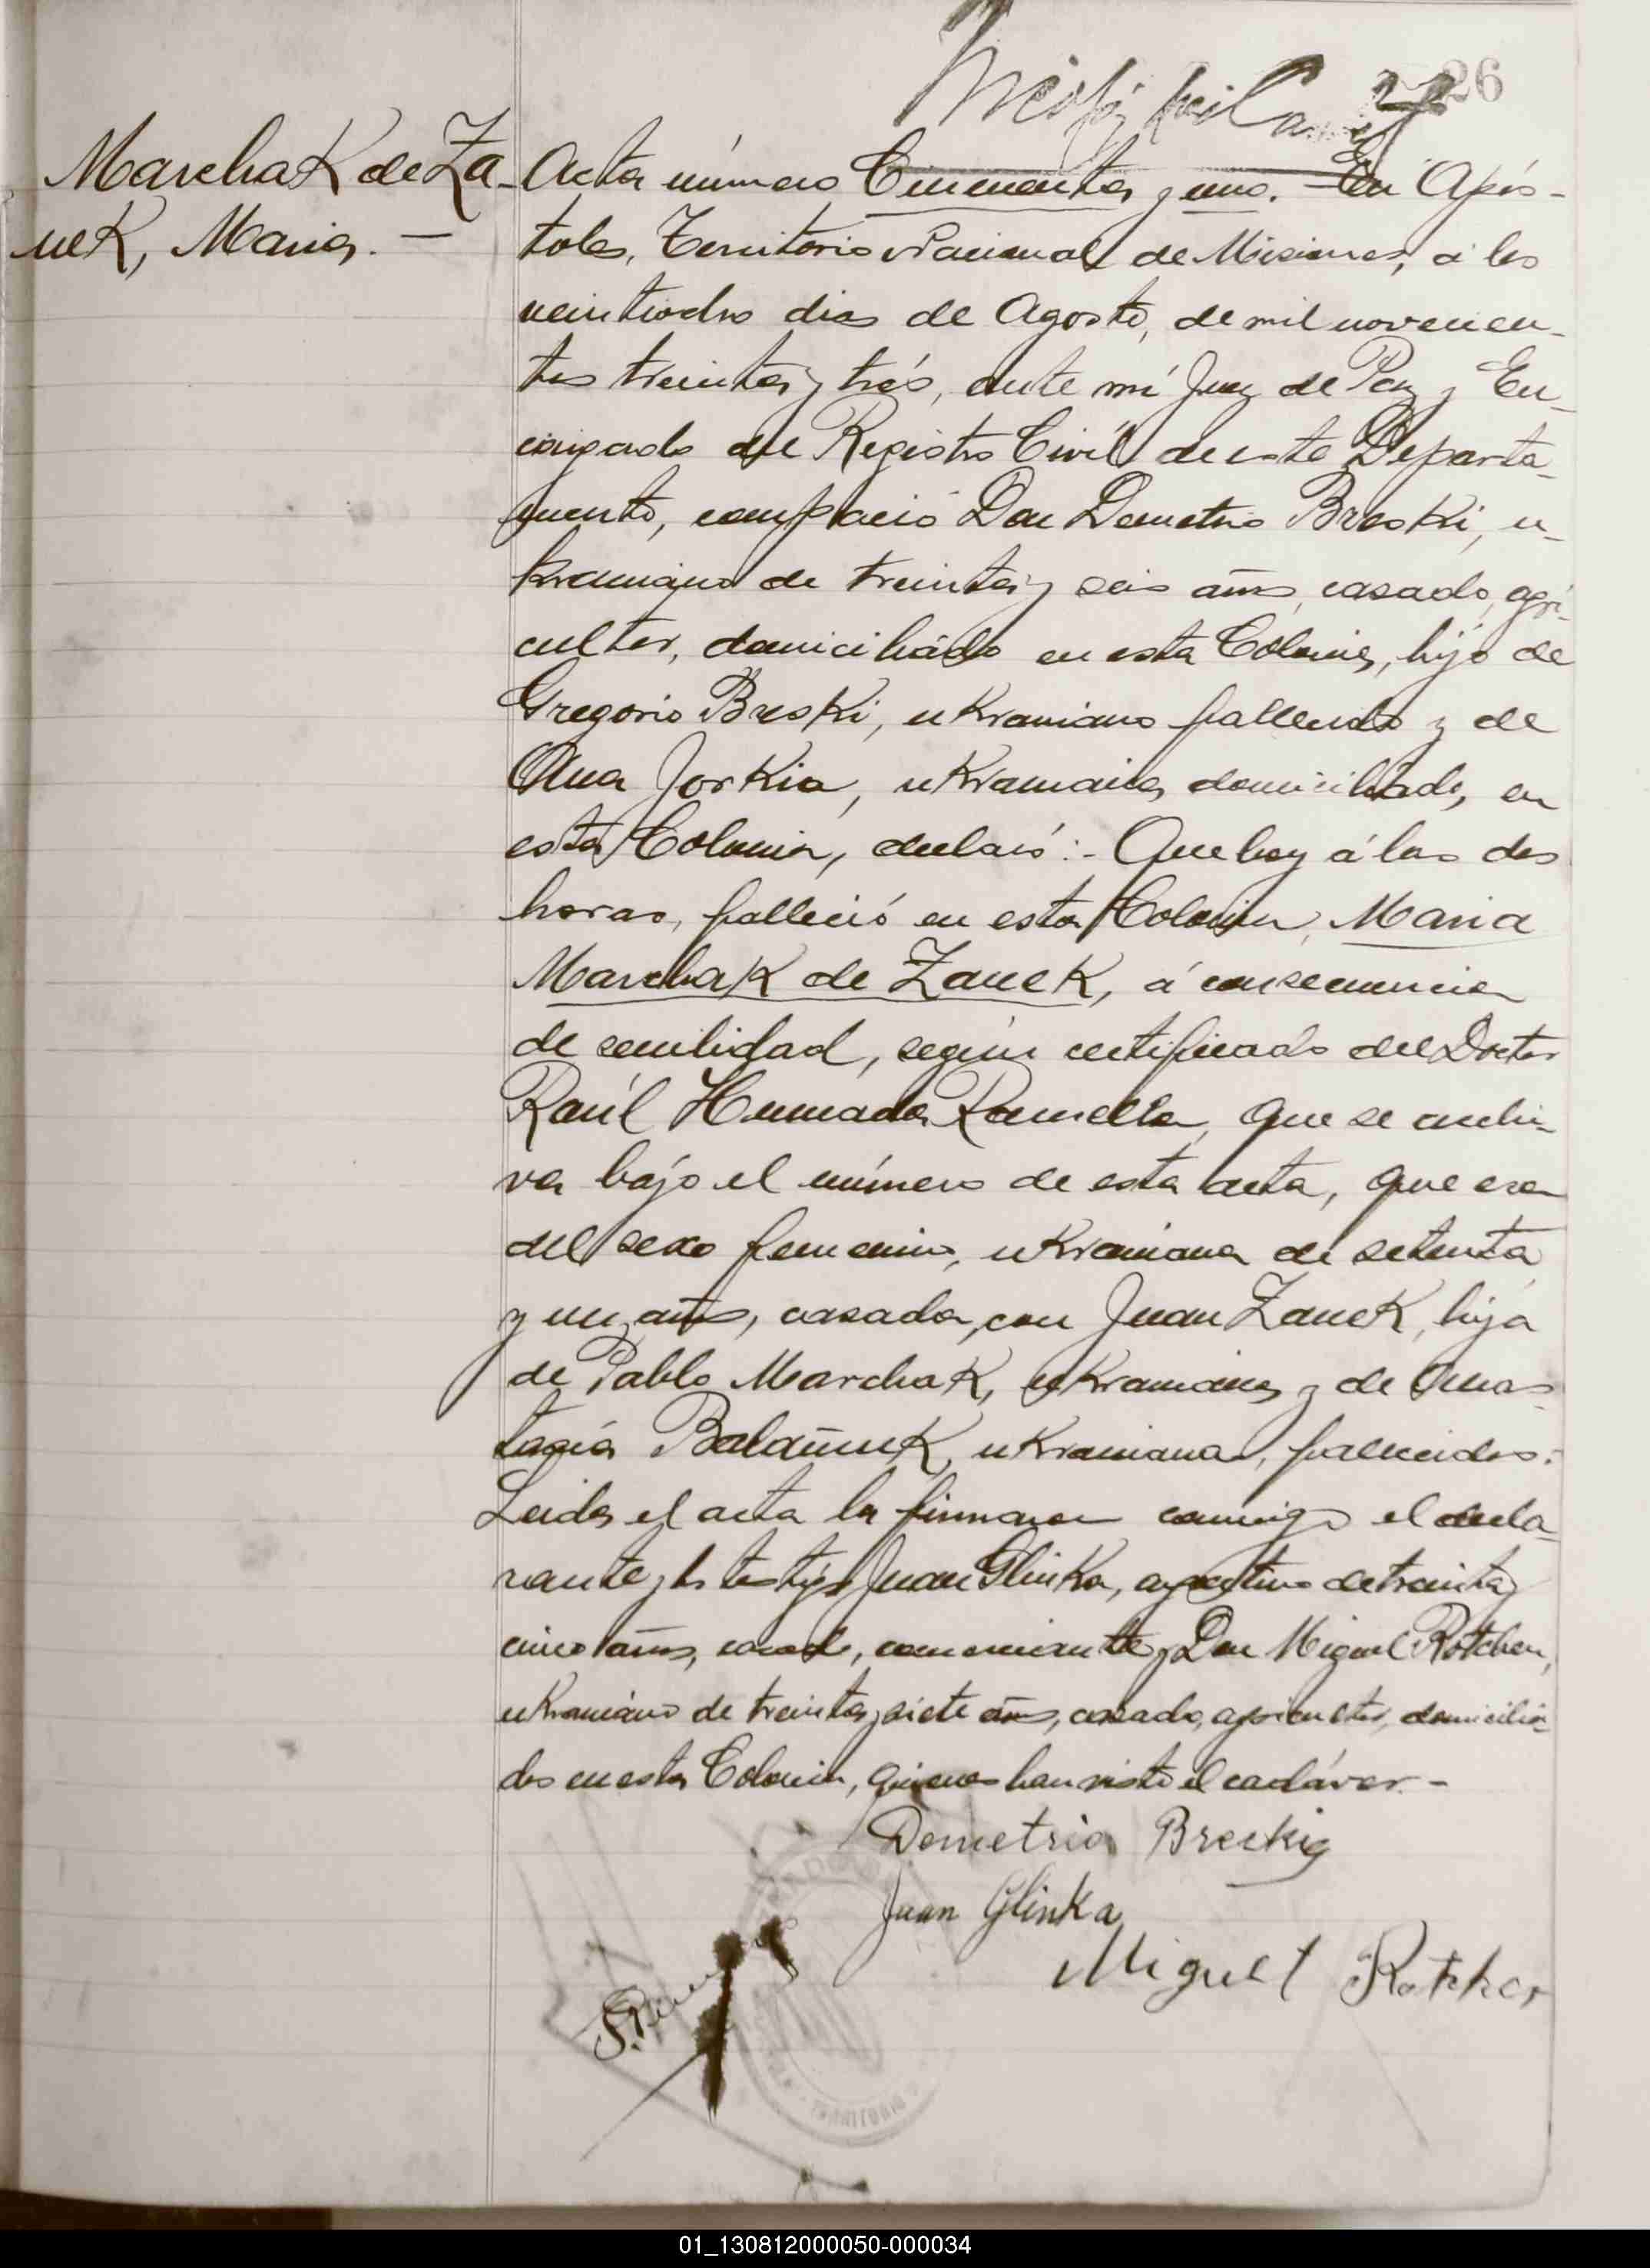 26
Marchak de Za-
nek, Maria. —
Acta número Cincuenta y uno. - En Após-
toles, Territorio Nacional de Misiones, á los
veintiocho dias de Agosto, de mil novecien-
tos treinta y trés, ante mí Juez de Paz y En-
cargado del Registro Civíl de este Departa-
mento, compareció Don Demetrio Breski, u-
kraniano de treinta y seis años, casado, agri-
cultor, domiciliádo en esta Colonia, hijo de
Gregorio Breski, ukraniano fallecido y de
Ana Jorkia, ukraniana, domiciliada, en
esta Colonia, declaró:- Que hoy á las dos
horas, falleció en esta Colonia, Maria
Marchak de Zanek, á consecuencia
de senilidad, según certificado del Doctor
Raúl Humada Ramella, que se archi-
va bájo el número de esta acta, que era
del sexo femenino, ukraniana de setenta
y un años, casada, con Juan Zanek, hija
de Pablo Marchak, ukraniano, y de Anas-
tacia Balañuk, ukraniana, fallecidos.
Leida el acta la firmaron conmigo el decla-
rante y los testigos Juan Glinka, argentino de treinta y
cinco años, casado, comerciante y Don Miguel Rotcher,
ukraniano de treinta y siete años, casado, agricultor, domicilia-
dos en esta Colonia, quienes han visto el cadáver. -
Demetrio Breskig
Juan Glinka
Miguel Rotcher
TERRITORIO
01_130812000050-000034